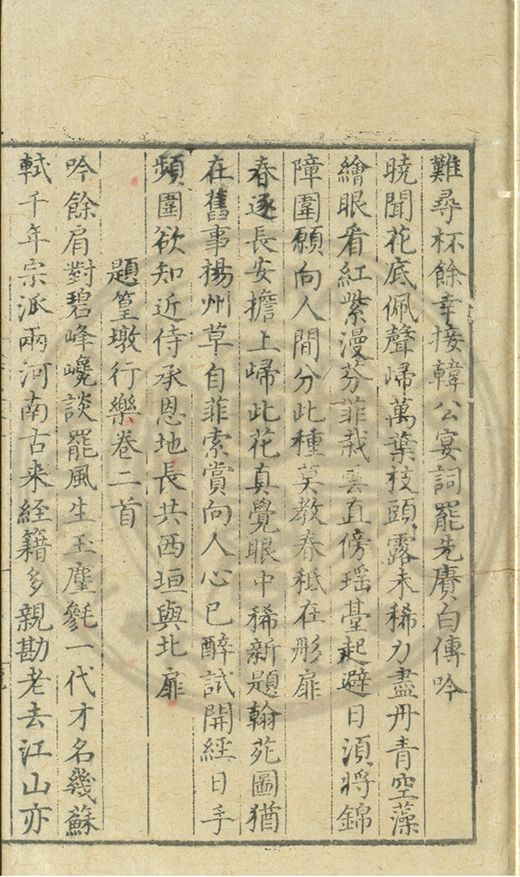 難尋杯餘幸接韓公宴詞罷先賡白傳吟
曉聞花底佩聲㱕萬葉枝頭露未稀力盡丹青空藻
繪眼看紅紫漫芬菲栽雲直傍瑶䑓起避日湏將錦
障圍願向人間分此種莫教春秪在彤扉
春逐長安擔上㱕此花真覺眼中稀新題翰苑圖猶
在舊事揚州草自菲索賞向人心已醉試開經日手
頻圍欲知近侍承恩地長共西垣與北扉
題篁墩行樂卷二首
吟餘肩對碧峰巉談罷風生玉麈毿一代才名幾蘇
軾千年宗派兩河南古来經籍多親勘老去江山亦